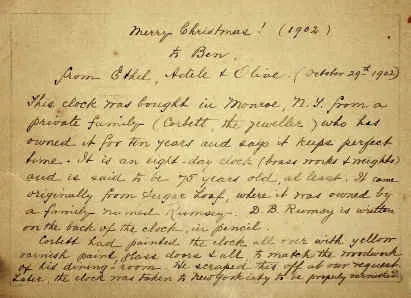 Merry Christmas! (1902)
to Ben,
from Ethel, Adele & Olive. (October 29th 1902)
This clock was bought in Monroe, N.Y. from a
private family (Corbett, the jeweller) who has
owned it for ten years and says it keeps perfect
time. It is an eight-day clock (brass works & weights)
and is said to be 75 years old, at least. It came
originally from Sugar Loaf, where it was owned by
a family named Rumsey. D. B. Rumsey is written
on the back of the clock, in pencil.
Corbett had painted the clock all over with yellow
varnish paint, glass doors & all, to match the woodwork
of his dining-room. He scraped this off at our request.
Later, the clock was taken to New York city to be properly varnished.